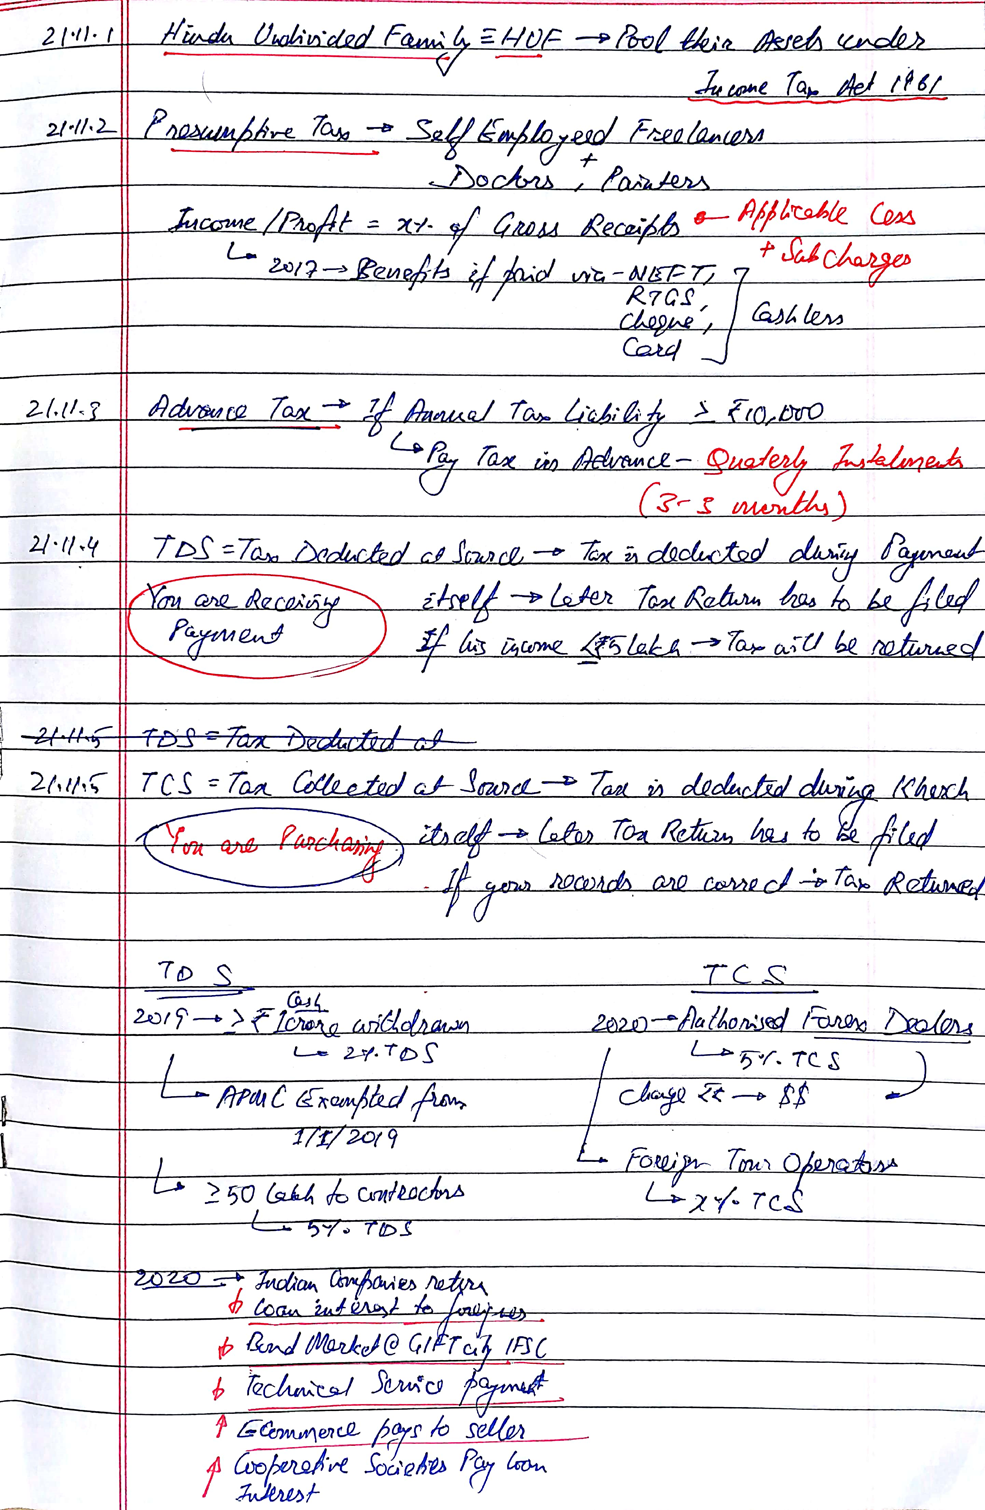 21.11.1 Hindu Undivided Family ≡ HUF → Pool their Assets under
Income Tax Act 1961
21.11.2 Presumptive Tax → Self Employeed Freelancers
+
Doctors, Painters
Income/Profit = x% of Gross Receipts ← Applicable Cess
+ SubCharges
2017 → Benefits if paid via - NEFT,
RTGS,
Cheque,
Card
Cashless
21.11.3 Advance Tax → If Annual Tax Liability ≥ ₹10,000
Pay Tax in Advance - Quaterly Instalments
(3-3 months)
21.11.4 TDS = Tax Deducted at Source → Tax is deducted during Payment
You are Receiving itself → Later Tax Return has to be filed
Payment If his income ≤ ₹5 lakh → Tax will be returned
21.11.5 TDS = Tax Deducted at
21.11.5 TCS = Tax Collected at Source → Tax is deducted during Kharch
You are Purchasing itself → Later Tax Return has to be filed
If your records are correct → Tax Returned
TDS
Cash
2019 → ≥ ₹1crore withdrawn
2% TDS
APMC Exempted from
1/1/2019
≥50 lakh to contractors
5% TDS
2020 → Indian Companies return
↓ loan interest to foreigners
↓ Bond Market @ GIFT city IFSC
↓ Technical Service payment
↑ ECommerce pays to seller
↑ Cooperative Societies Pay loan
Interest
TCS
2020 → Authorised Forex Dealers
5% TCS
change ₹₹ → $$
Foreign Tour Operators
x% TCS